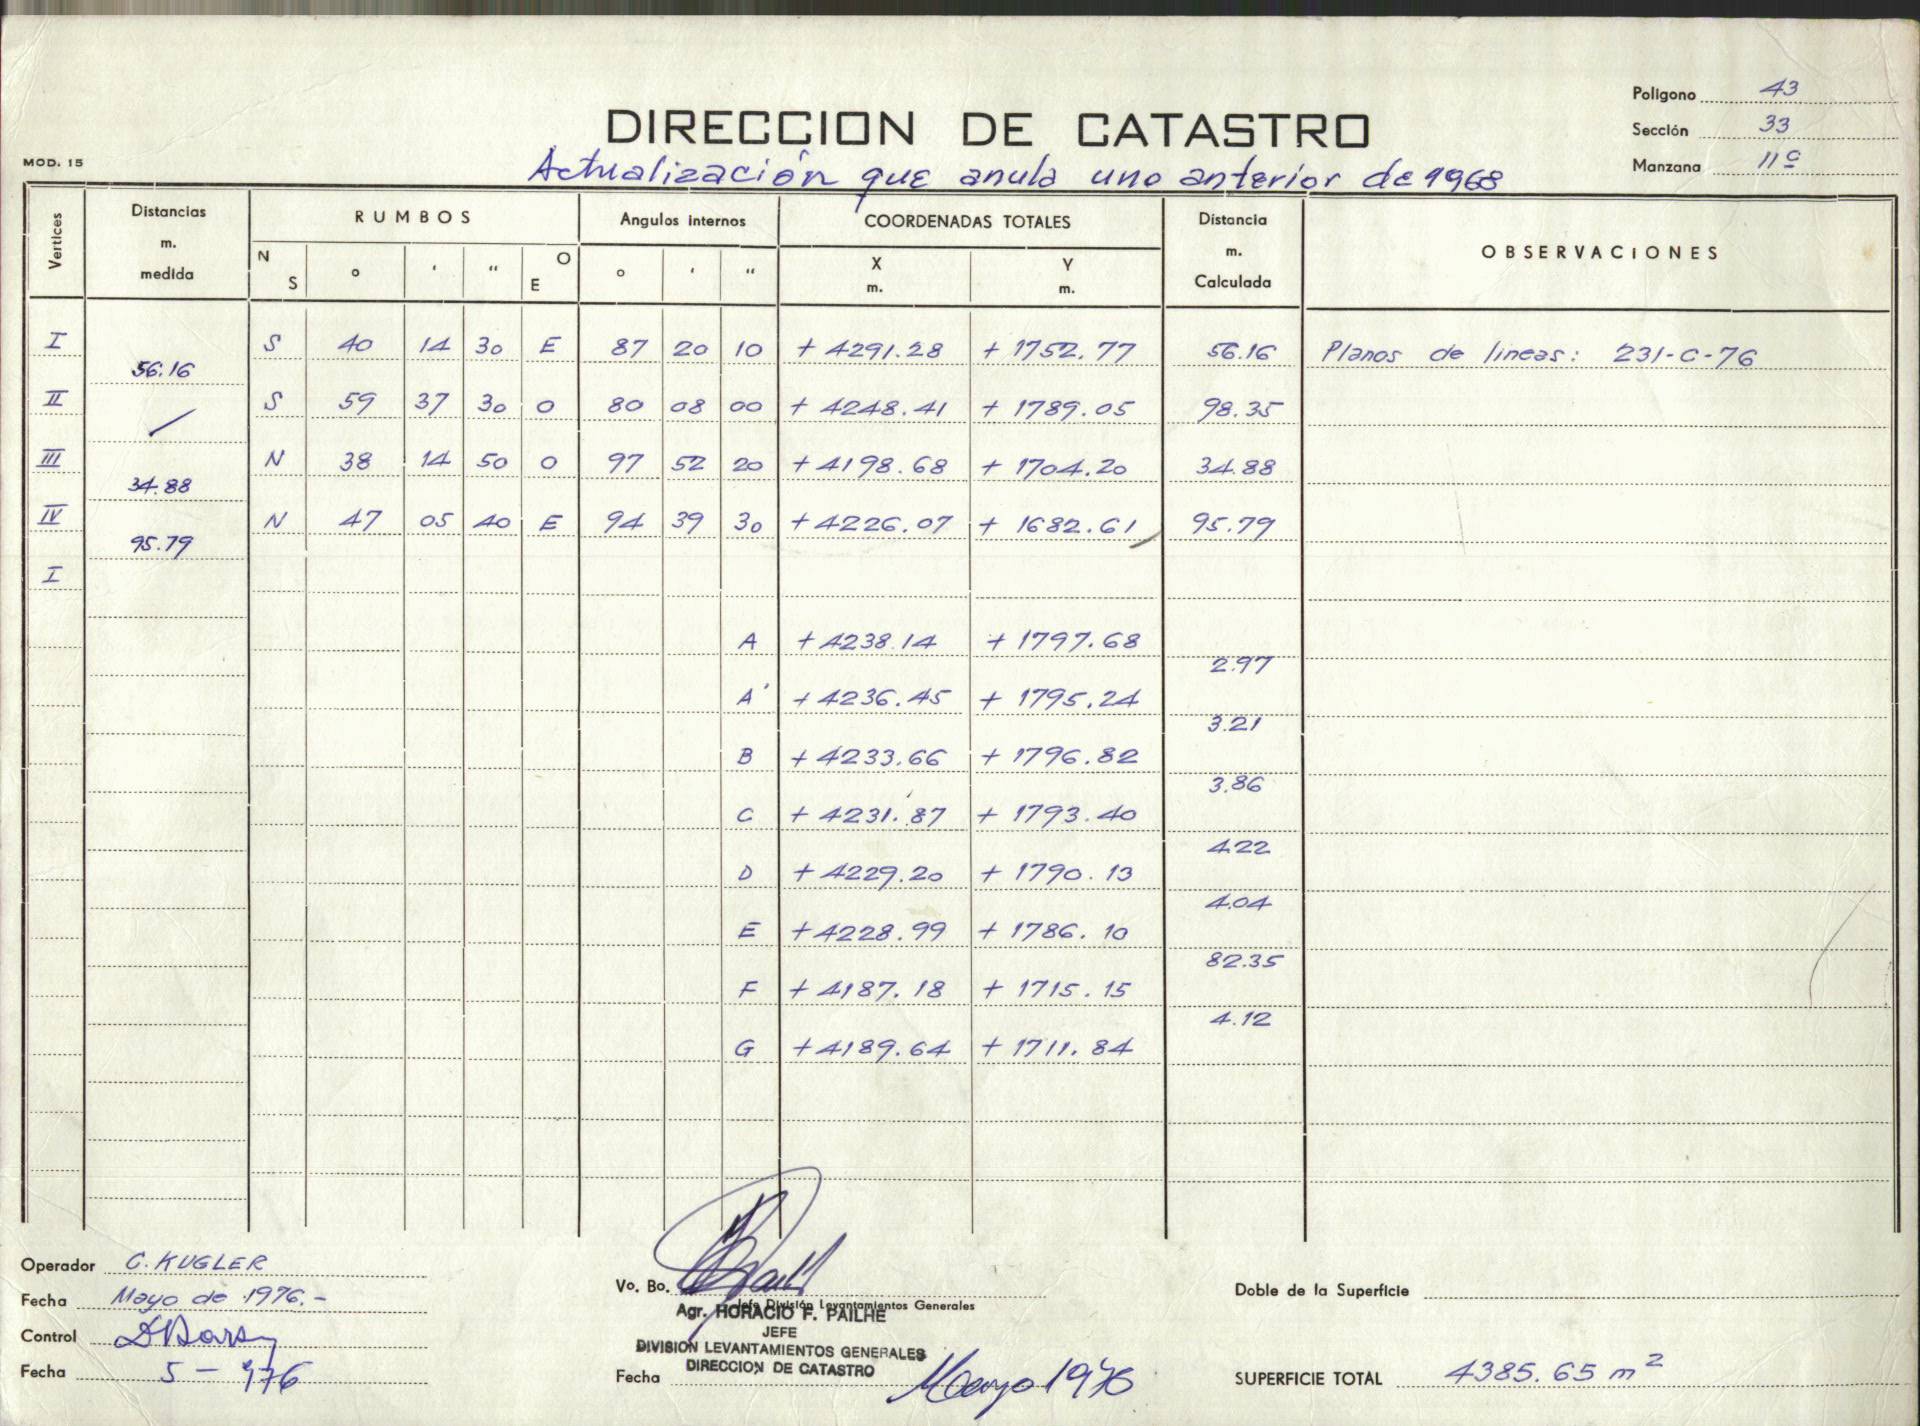 Poligono 43
DIRECCION DE CATASTRO
Sección 33
MOD. 15
Manzana 11c
Actualización que anula uno anterior de 1968
Vertices
Distancias m. medida
RUMBOS
Angulos internos
COORDENADAS TOTALES
Distancia m. Calculada
OBSERVACIONES
N S ° ' " O E ° ' " X m. Y m.
I S 40 14 30 E 87 20 10 + 4291.28 + 1752.77 56.16 Planos de lineas: 231-C-76
56.16
II S 59 37 30 O 80 08 00 + 4248.41 + 1789.05 98.35
III N 38 14 50 O 97 52 20 + 4198.68 + 1704.20 34.88
34.88
IV N 47 05 40 E 94 39 30 + 4226.07 + 1682.61 95.79
95.79
I
A + 4238.14 + 1797.68
2.97
A' + 4236.45 + 1795.24
3.21
B + 4233.66 + 1796.82
3.86
C + 4231.87 + 1793.40
4.22
D + 4229.20 + 1790.13
4.04
E + 4228.99 + 1786.10
82.35
F + 4187.18 + 1715.15
4.12
G + 4189.64 + 1711.84
Operador C. KUGLER
Fecha Mayo de 1976.-
Control
Fecha 5 - 976
Vo. Bo.
Jefe División Levantamientos Generales
Agr. HORACIO F. PAILHE
JEFE
DIVISION LEVANTAMIENTOS GENERALES
DIRECCION DE CATASTRO
Fecha Mayo 1976
Doble de la Superficie
SUPERFICIE TOTAL 4385.65 m2